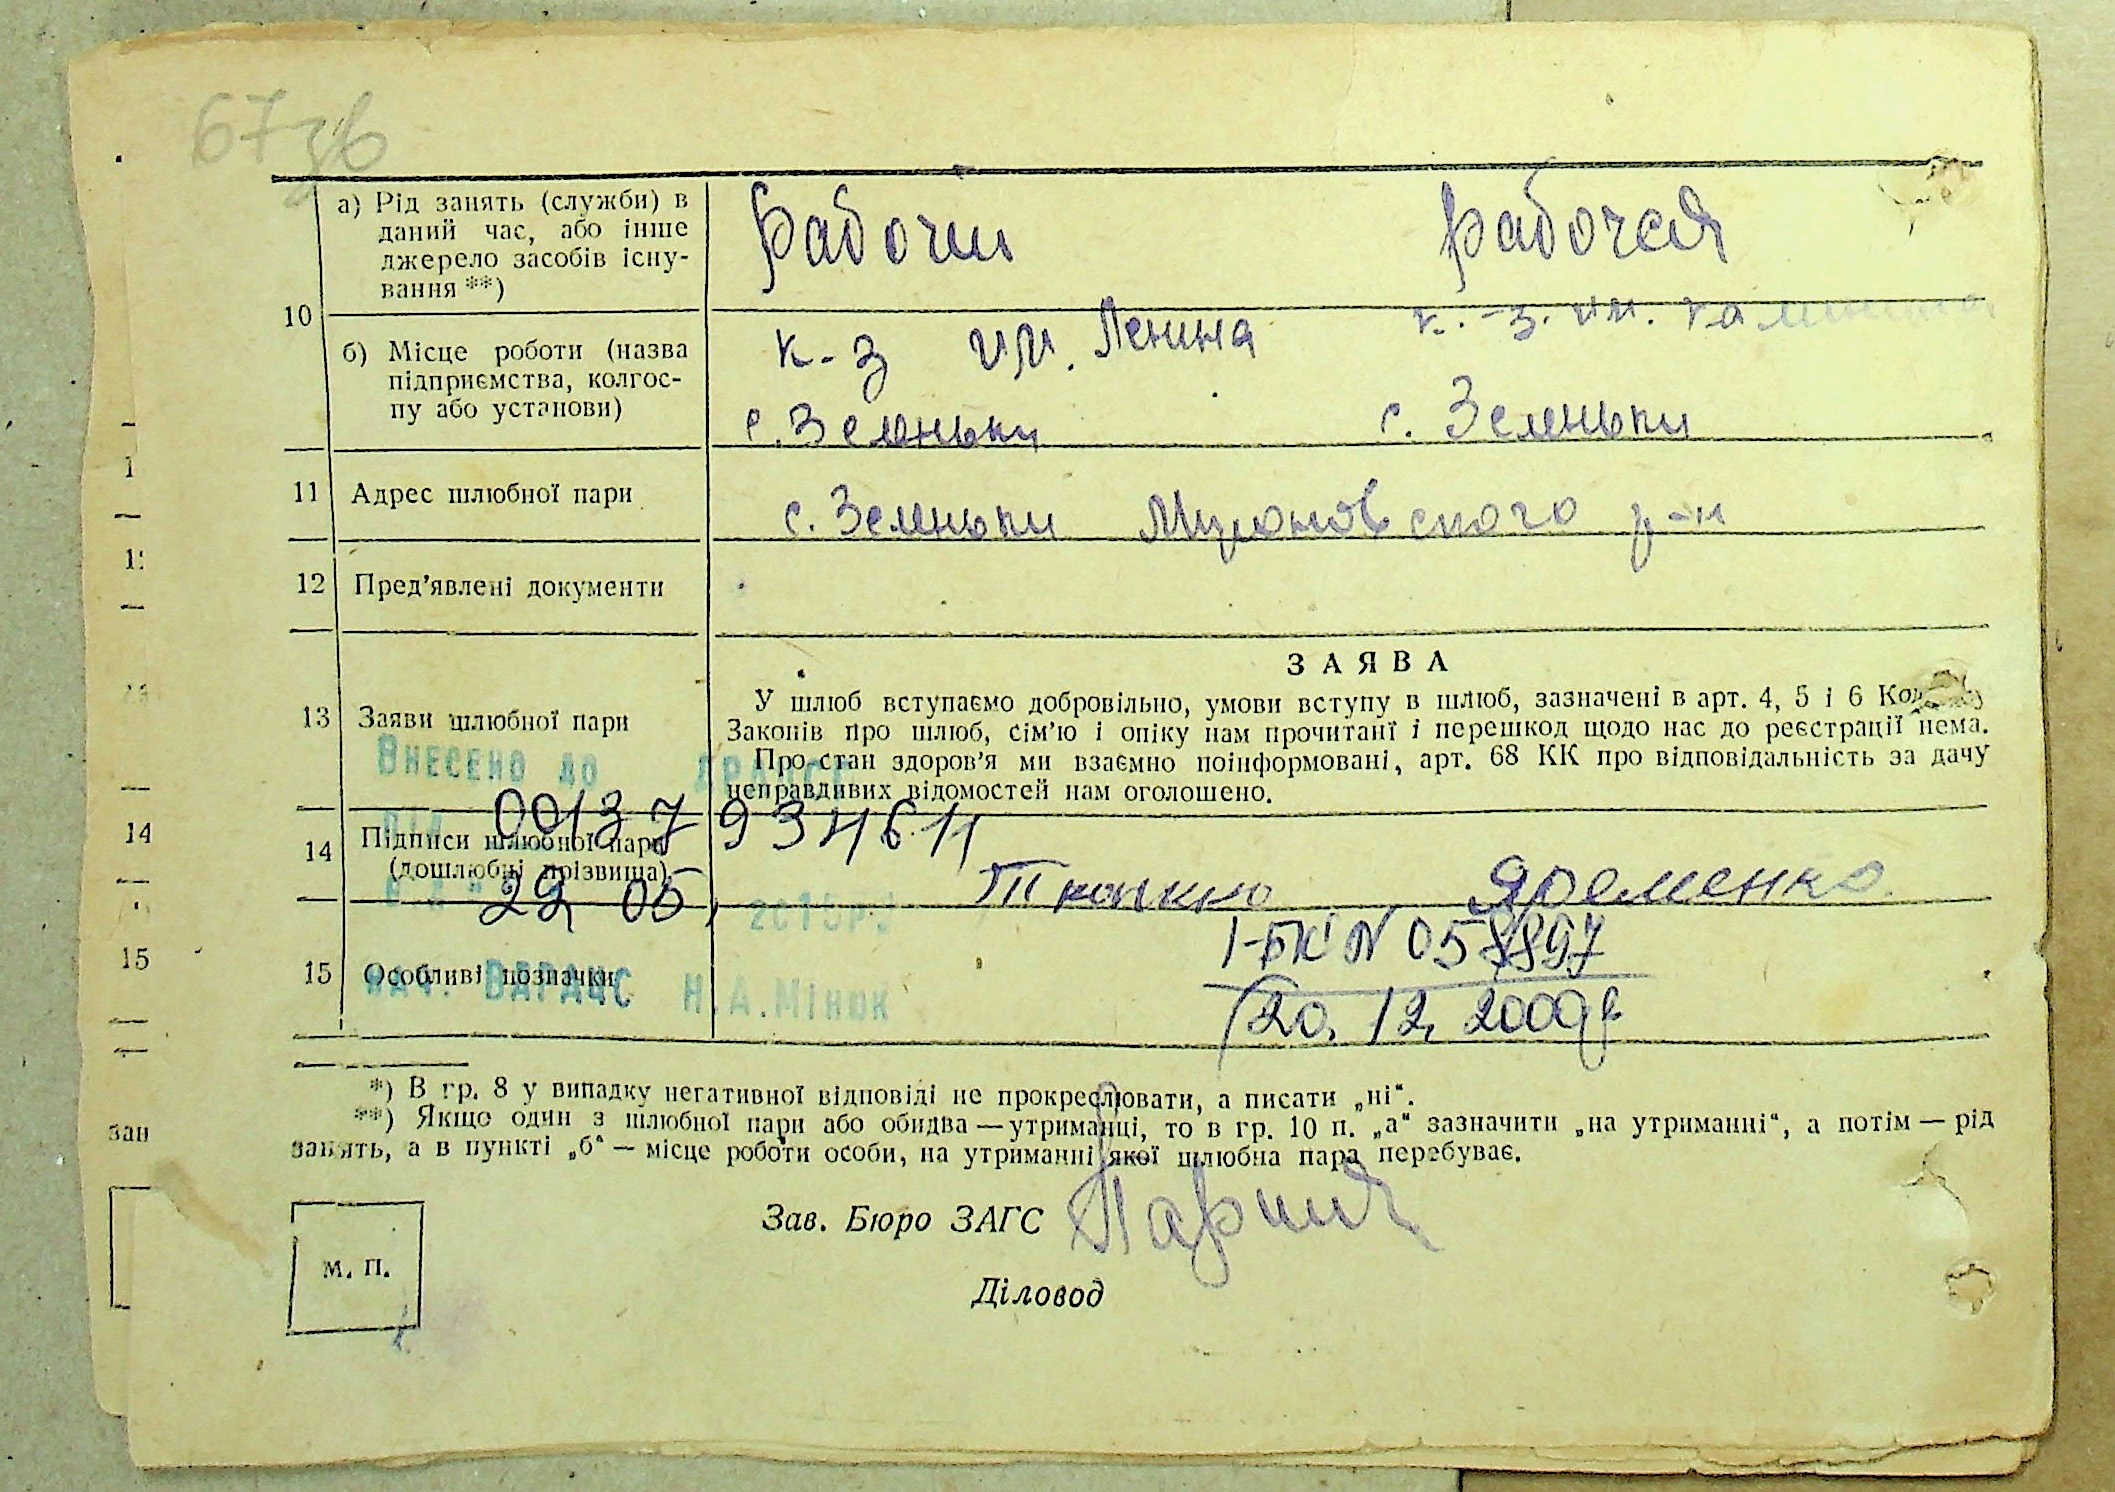 67зв
а) Рід занять (служби) в
даний час, або інше
джерело засобів існу-
вання **)
Рабочий
Рабочая
10
б) Місце роботи (назва
підприємства, колгос-
пу або установи)
к-з им. Ленина
к.-з. им. Калинина
с. Зеленьки
с. Зеленьки
11
Адрес шлюбної пари
с. Зеленьки Мироновского р-н
12
Пред'явлені документи
ЗАЯВА
13
Заяви шлюбної пари
У шлюб вступаємо добровільно, умови вступу в шлюб, зазначені в арт. 4, 5 і 6
Законів про шлюб, сім'ю і опіку нам прочитані і перешкод щодо нас до реєстрації нема.
Про стан здоров'я ми взаємно поінформовані, арт. 68 КК про відповідальність за дачу
неправдивих відомостей нам оголошено.
Внесено до ДРАЦСГ
14
Підписи шлюбної пари
(дошлюбні прізвища)
Яременко
22, 05,
15
Особливі позначки
I-БК N
20. 12. 2009р
Нач. ВДРАЦС Н.А.Мінюк
*) В гр. 8 у випадку негативної відповіді не прокреслювати, а писати „ні“.
**) Якщо один з шлюбної пари або обидва — утриманці, то в гр. 10 п. „а“ зазначити „на утриманні“, а потім — рід
занять, а в пункті „б“ — місце роботи особи, на утриманні якої шлюбна пара перебуває.
Зав. Бюро ЗАГС
м. п.
Діловод
1
14
15
зан